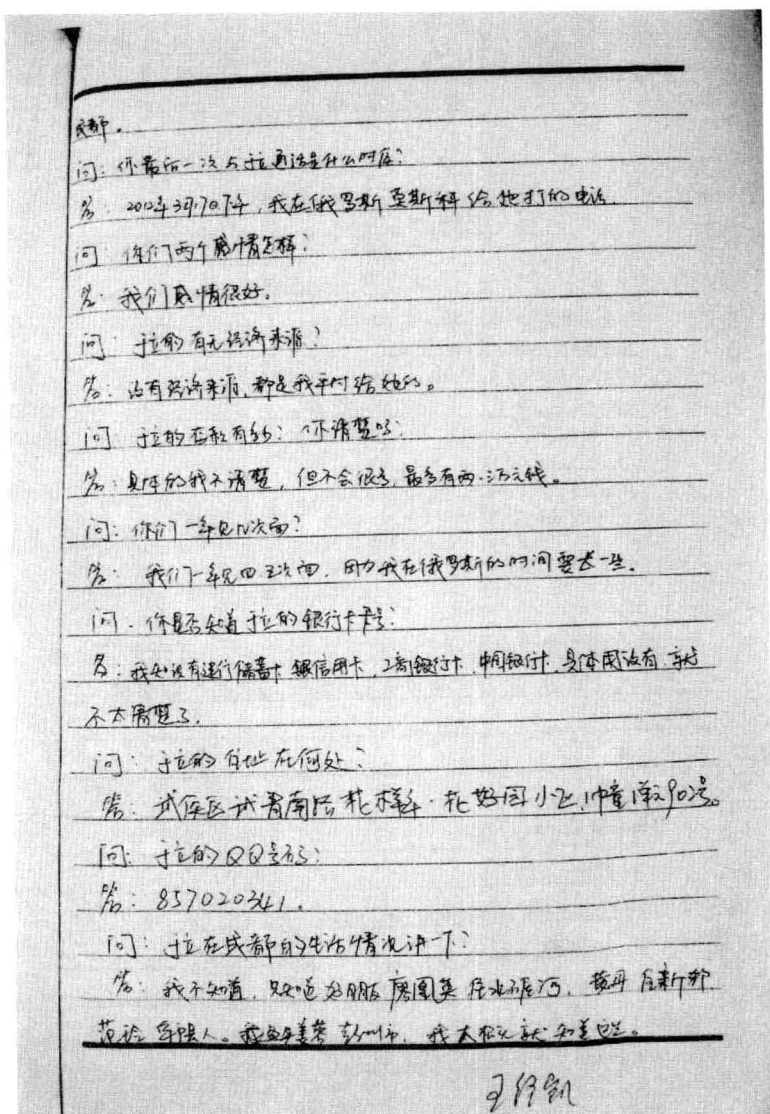 成都。
问：你最后一次与于立通话是什么时候？
答：2012年3月17日下午，我在俄罗斯莫斯科给她打的电话。
问：你们两个感情怎样？
答：我们感情很好。
问：于立的有无经济来源？
答：没有经济来源，都是我平时给她的。
问：于立的存款有多少？你清楚吗？
答：具体的我不清楚，但不会很多，最多有两、三万元钱。
问：你们一年见几次面？
答：我们一年见四五次面，因为我在俄罗斯的时间要长一些。
问：你是否知道于立的银行卡卡号？
答：我知 有建行储蓄卡 信用卡，工商银行卡，中国银行卡，具体用没有，就
不太清楚了。
问：于立的住址在何处？
答：武侯区武青南路花样年·花好园小区1幢1单元902号。
问：于立的QQ号码：
答：857020341.
问：于立在成都的生活情况讲一下？
答：我不知道，只知道 好朋友 唐 英 住水碾河，
人。 彭州市，我大概就知道这些。